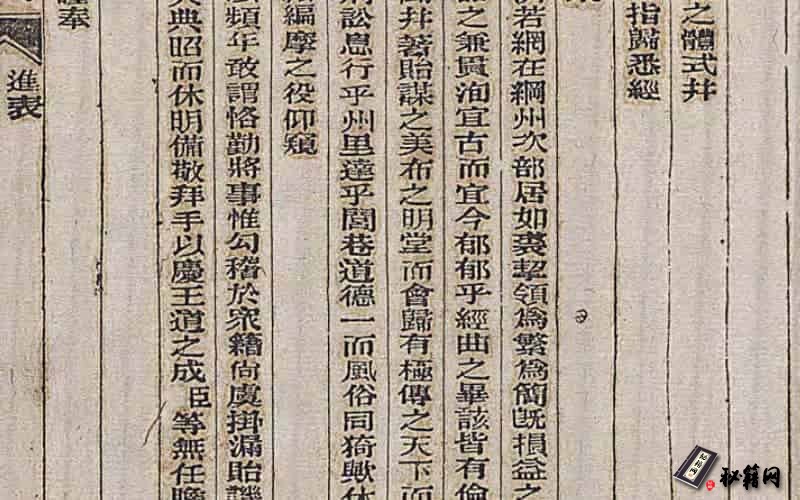 之體式井
指歸悉經
若網在綱州次部居如裘挈領爲繁爲簡既損益之
之兼貫洵宜古而宜今郁郁乎經曲之畢該皆有倫
井著貽謀之美布之明堂而會歸有極傳之天下而
訟息行乎州里達乎閭巷道德一而風俗同猗歟休
編摩之役仰窺
頻年敢謂恪勤將事惟勾稽於衆籍尚虞掛漏貽譏
典昭而休明備敬拜手以慶王道之成臣等無任瞻
奉
進表
秘籍网